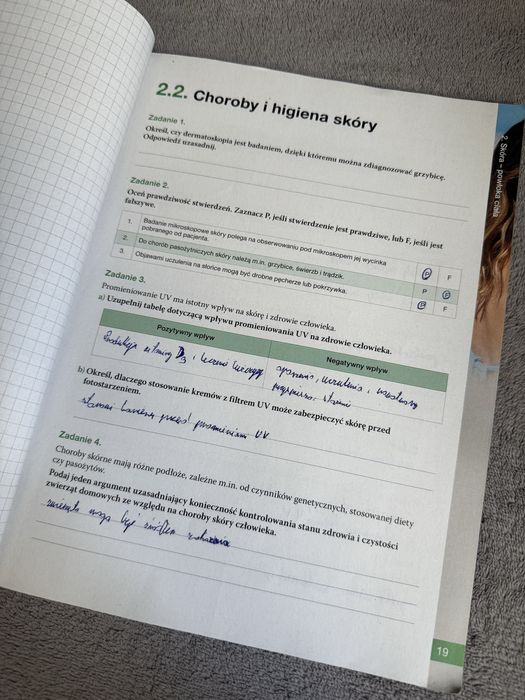 2.2. Choroby i higiena skóry
2. Skóra – powłoka ciała
Zadanie 1.
Określ, czy dermatoskopia jest badaniem, dzięki któremu można zdiagnozować grzybicę.
Odpowiedź uzasadnij.
Zadanie 2.
Oceń prawdziwość stwierdzeń. Zaznacz P, jeśli stwierdzenie jest prawdziwe, lub F, jeśli jest
fałszywe.
1. Badanie mikroskopowe skóry polega na obserwowaniu pod mikroskopem jej wycinka
pobranego od pacjenta. P F
2. Do chorób pasożytniczych skóry należą m.in. grzybice, świerzb i trądzik. P F
3. Objawami uczulenia na słońce mogą być drobne pęcherze lub pokrzywka. P F
Zadanie 3.
Promieniowanie UV ma istotny wpływ na skórę i zdrowie człowieka.
a) Uzupełnij tabelę dotyczącą wpływu promieniowania UV na zdrowie człowieka.
Pozytywny wpływ Negatywny wpływ
Produkcja witaminy D3, i
oparzenia, uczulenia,
b) Określ, dlaczego stosowanie kremów z filtrem UV może zabezpieczyć skórę przed
fotostarzeniem.
stanowi barierę przed promieniami UV
Zadanie 4.
Choroby skórne mają różne podłoże, zależne m.in. od czynników genetycznych, stosowanej diety
czy pasożytów.
Podaj jeden argument uzasadniający konieczność kontrolowania stanu zdrowia i czystości
zwierząt domowych ze względu na choroby skóry człowieka.
zwierzęta mogą być źródłem zakażenia
19